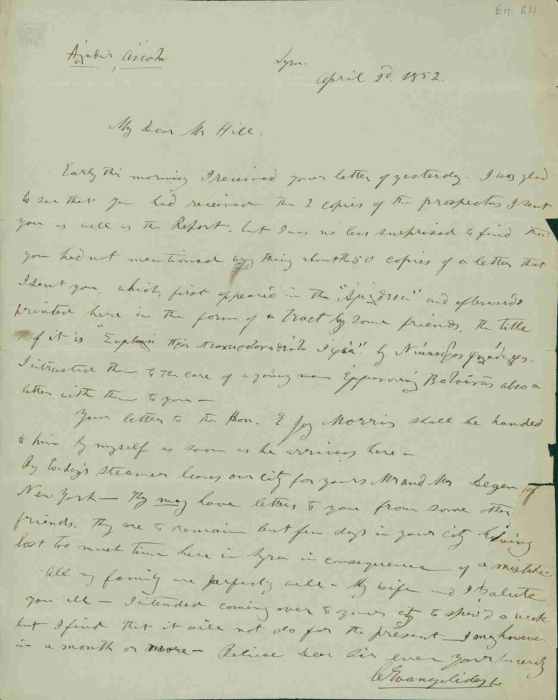 Em. 64
Syra.
April 2d. 1852.
My Dear Mr Hill.
Early this morning I received your letter of yesterday. I was glad
to see that you had received the 2 copies of the prospectus I sent
you as well as the Report. but I was no less surprised to find that
you had not mentioned any thing about the 50 copies of a letter that
I sent you, which first appeared in the and afterwards
printed here in the form of a Tract by some friends. The title
of it is by
I intrusted them to the care of a young man also a
letter with them to you —
Your letter to the Hon. E Joy Morris shall be handed
to him by myself as soon as he arrives here —
By today's steamer leaves our city for yours Mr and Mrs of
New York — They may have letters to you from some other
friends. They are to remain but few days in your city having
lost too much time here in Syra in consequence of a mistake.
All my family are perfectly well — My wife and I salute
you all — I intended coming over to your city to spend a week
but I find that it will not do for the present — I may however
in a month or more — Believe dear Sir ever yours sincerely
Evangelides